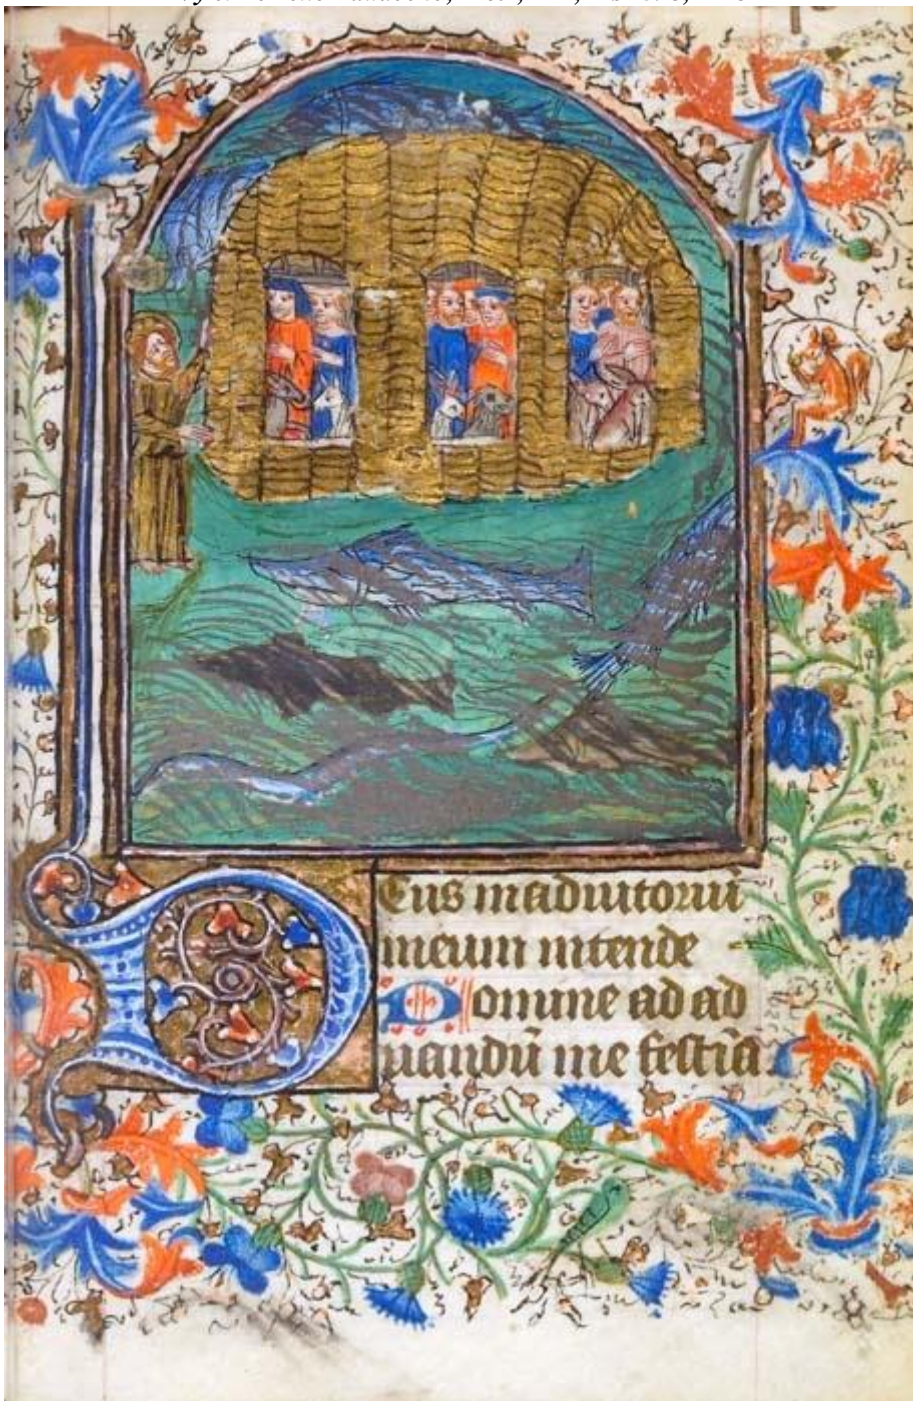 Deus in adiutoriũ
meum intende
Domine ad ad
iuuandũ me festĩa